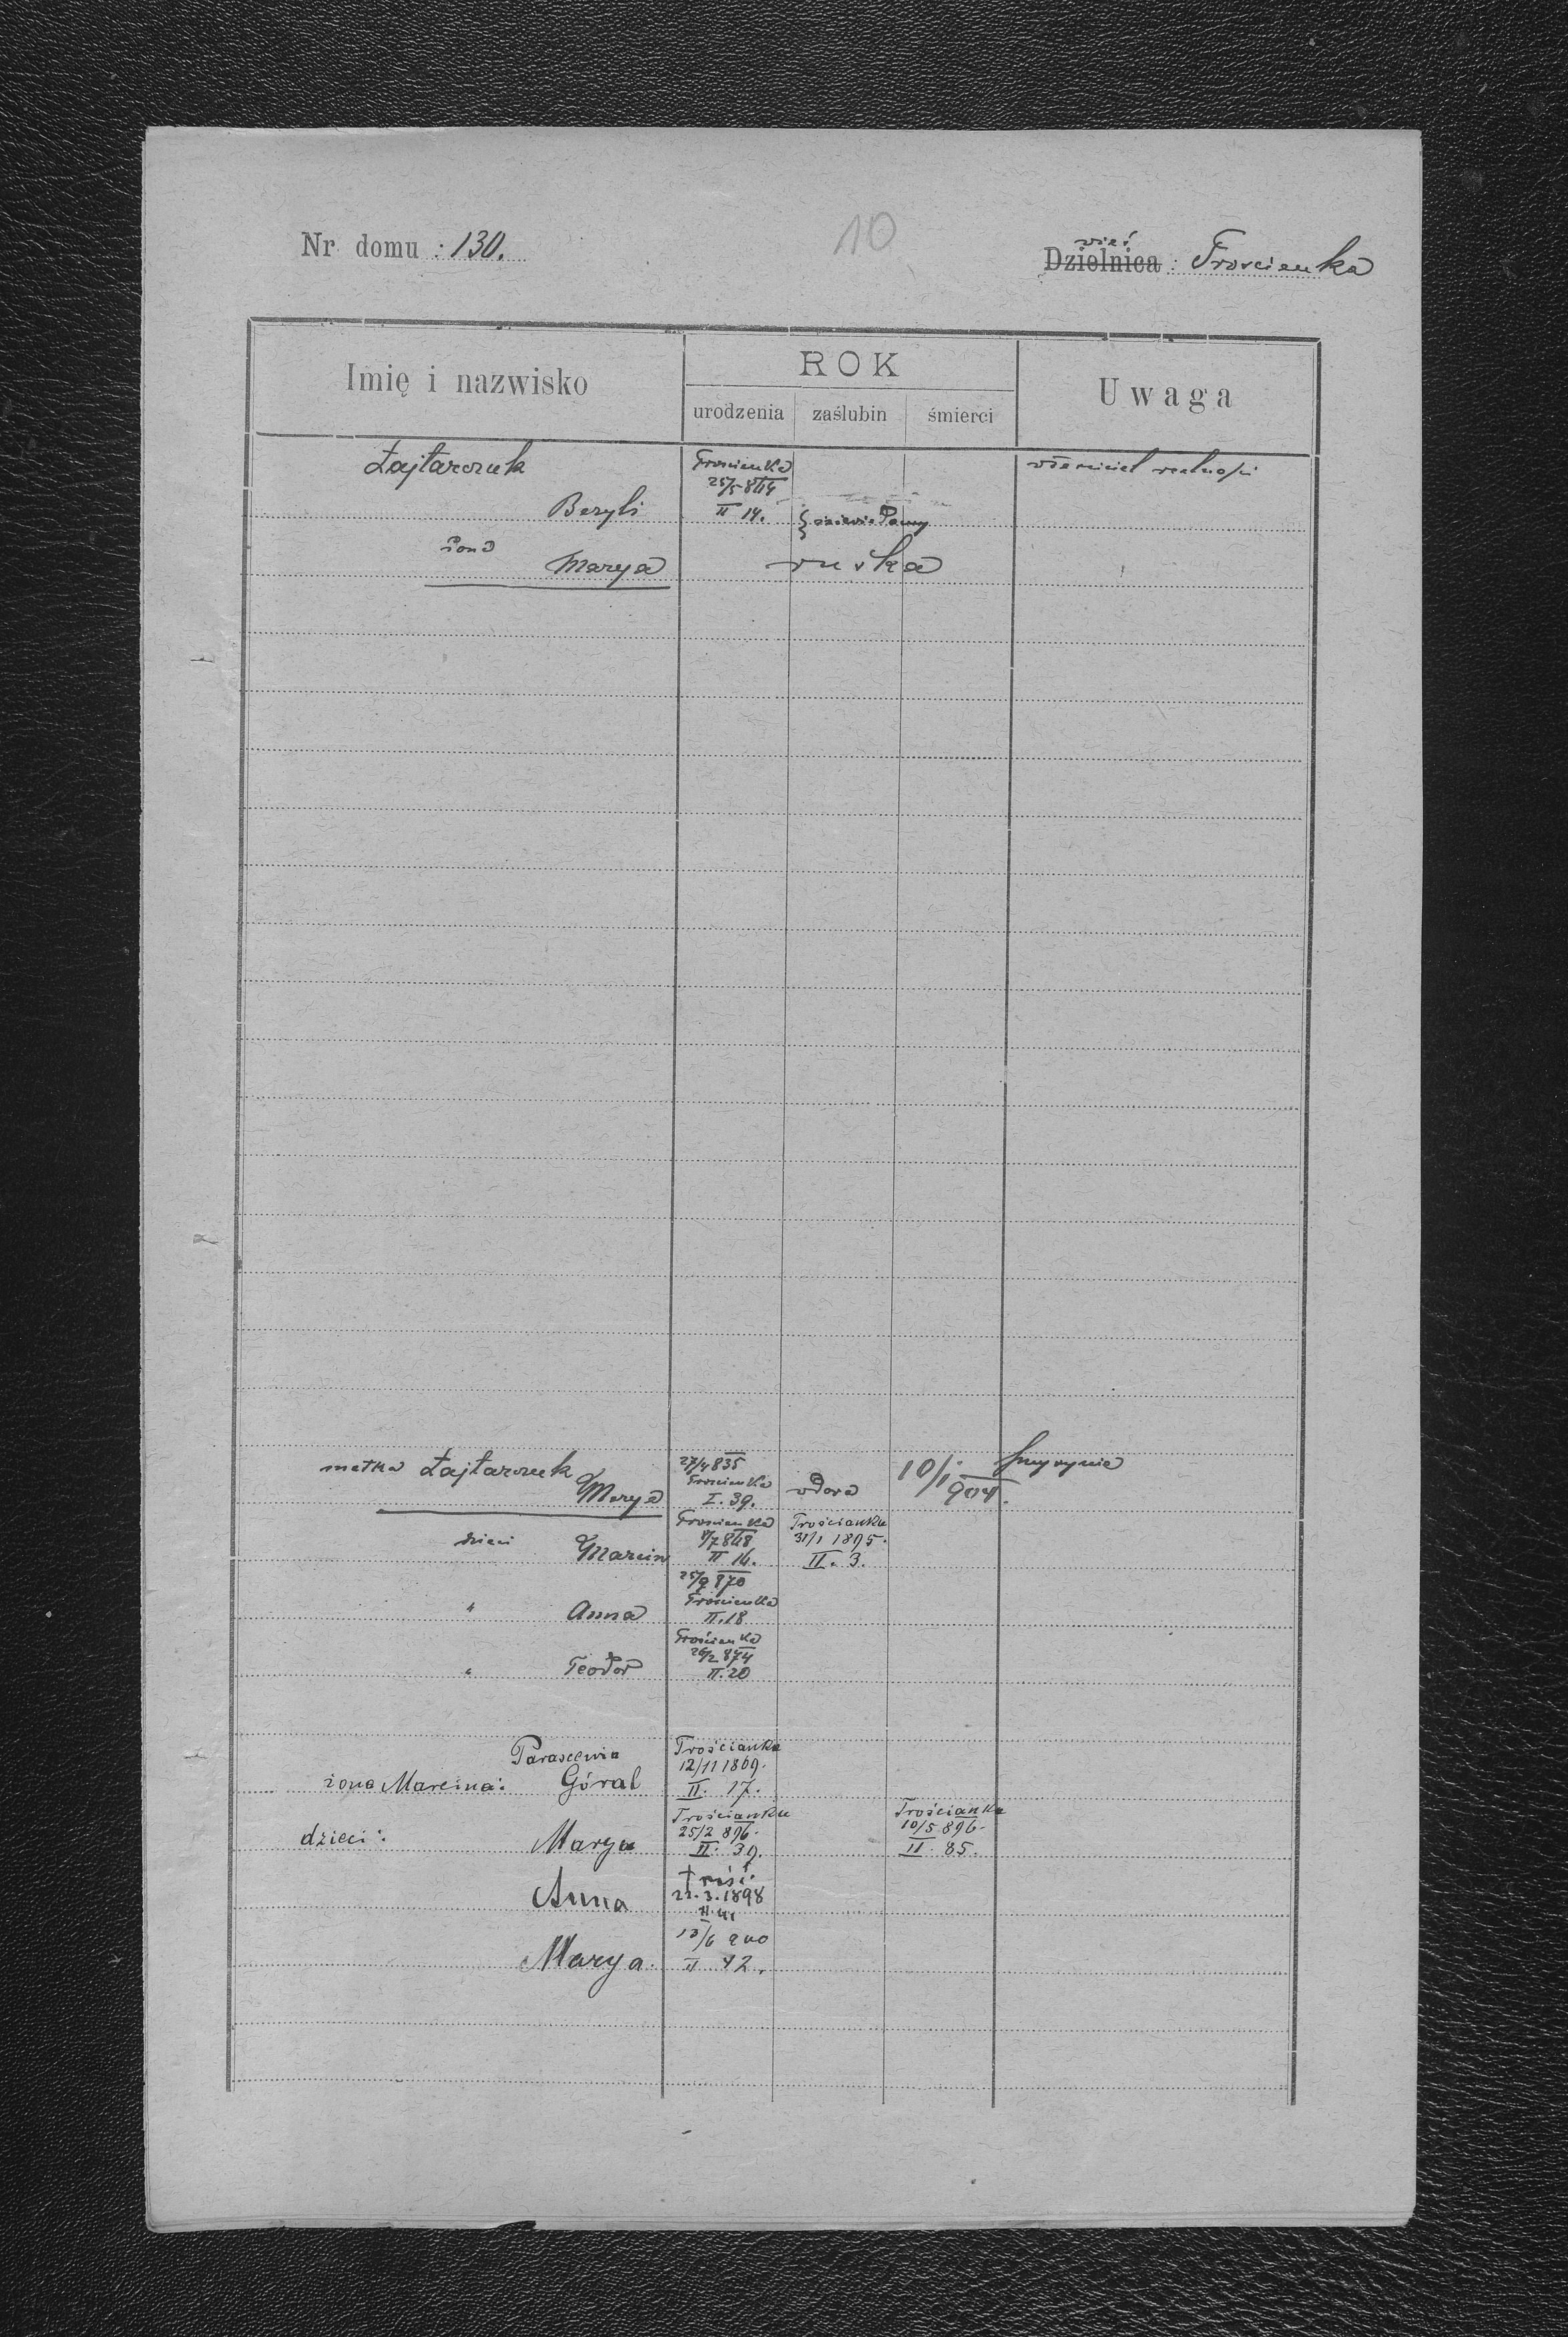 10
Nr domu : 130.
wieś
Dzielnica : Trościanka
Imię i nazwisko
ROK
urodzenia zaślubin śmierci
Uwaga
Łajtarczuk Trościanka właściciel realności
25/5 864
Bazyli II 14.
żona Marya ruska
27/4 835
matka Łajtarczuk Trościanka 10/1
Marya I. 39. wdowa 904.
Trościanka Trościanka
dzieci Marcin 8/7 868 31/1 1895.
II 16. II. 3.
25/9 870
" Anna Trościanka
II. 18
Trościanka
" Teodor 26/2 874
II. 20
Parascewia Trościanka
12/11 1869.
żona Marcina: Góral II. 17.
Trościanka Trościanka
dzieci: Marya 25/2 896. 10/5 896.
II. 39. II. 85.
Trość.
Anna 22.3.1898
II. 41
13/6 900
Marya. II 42.